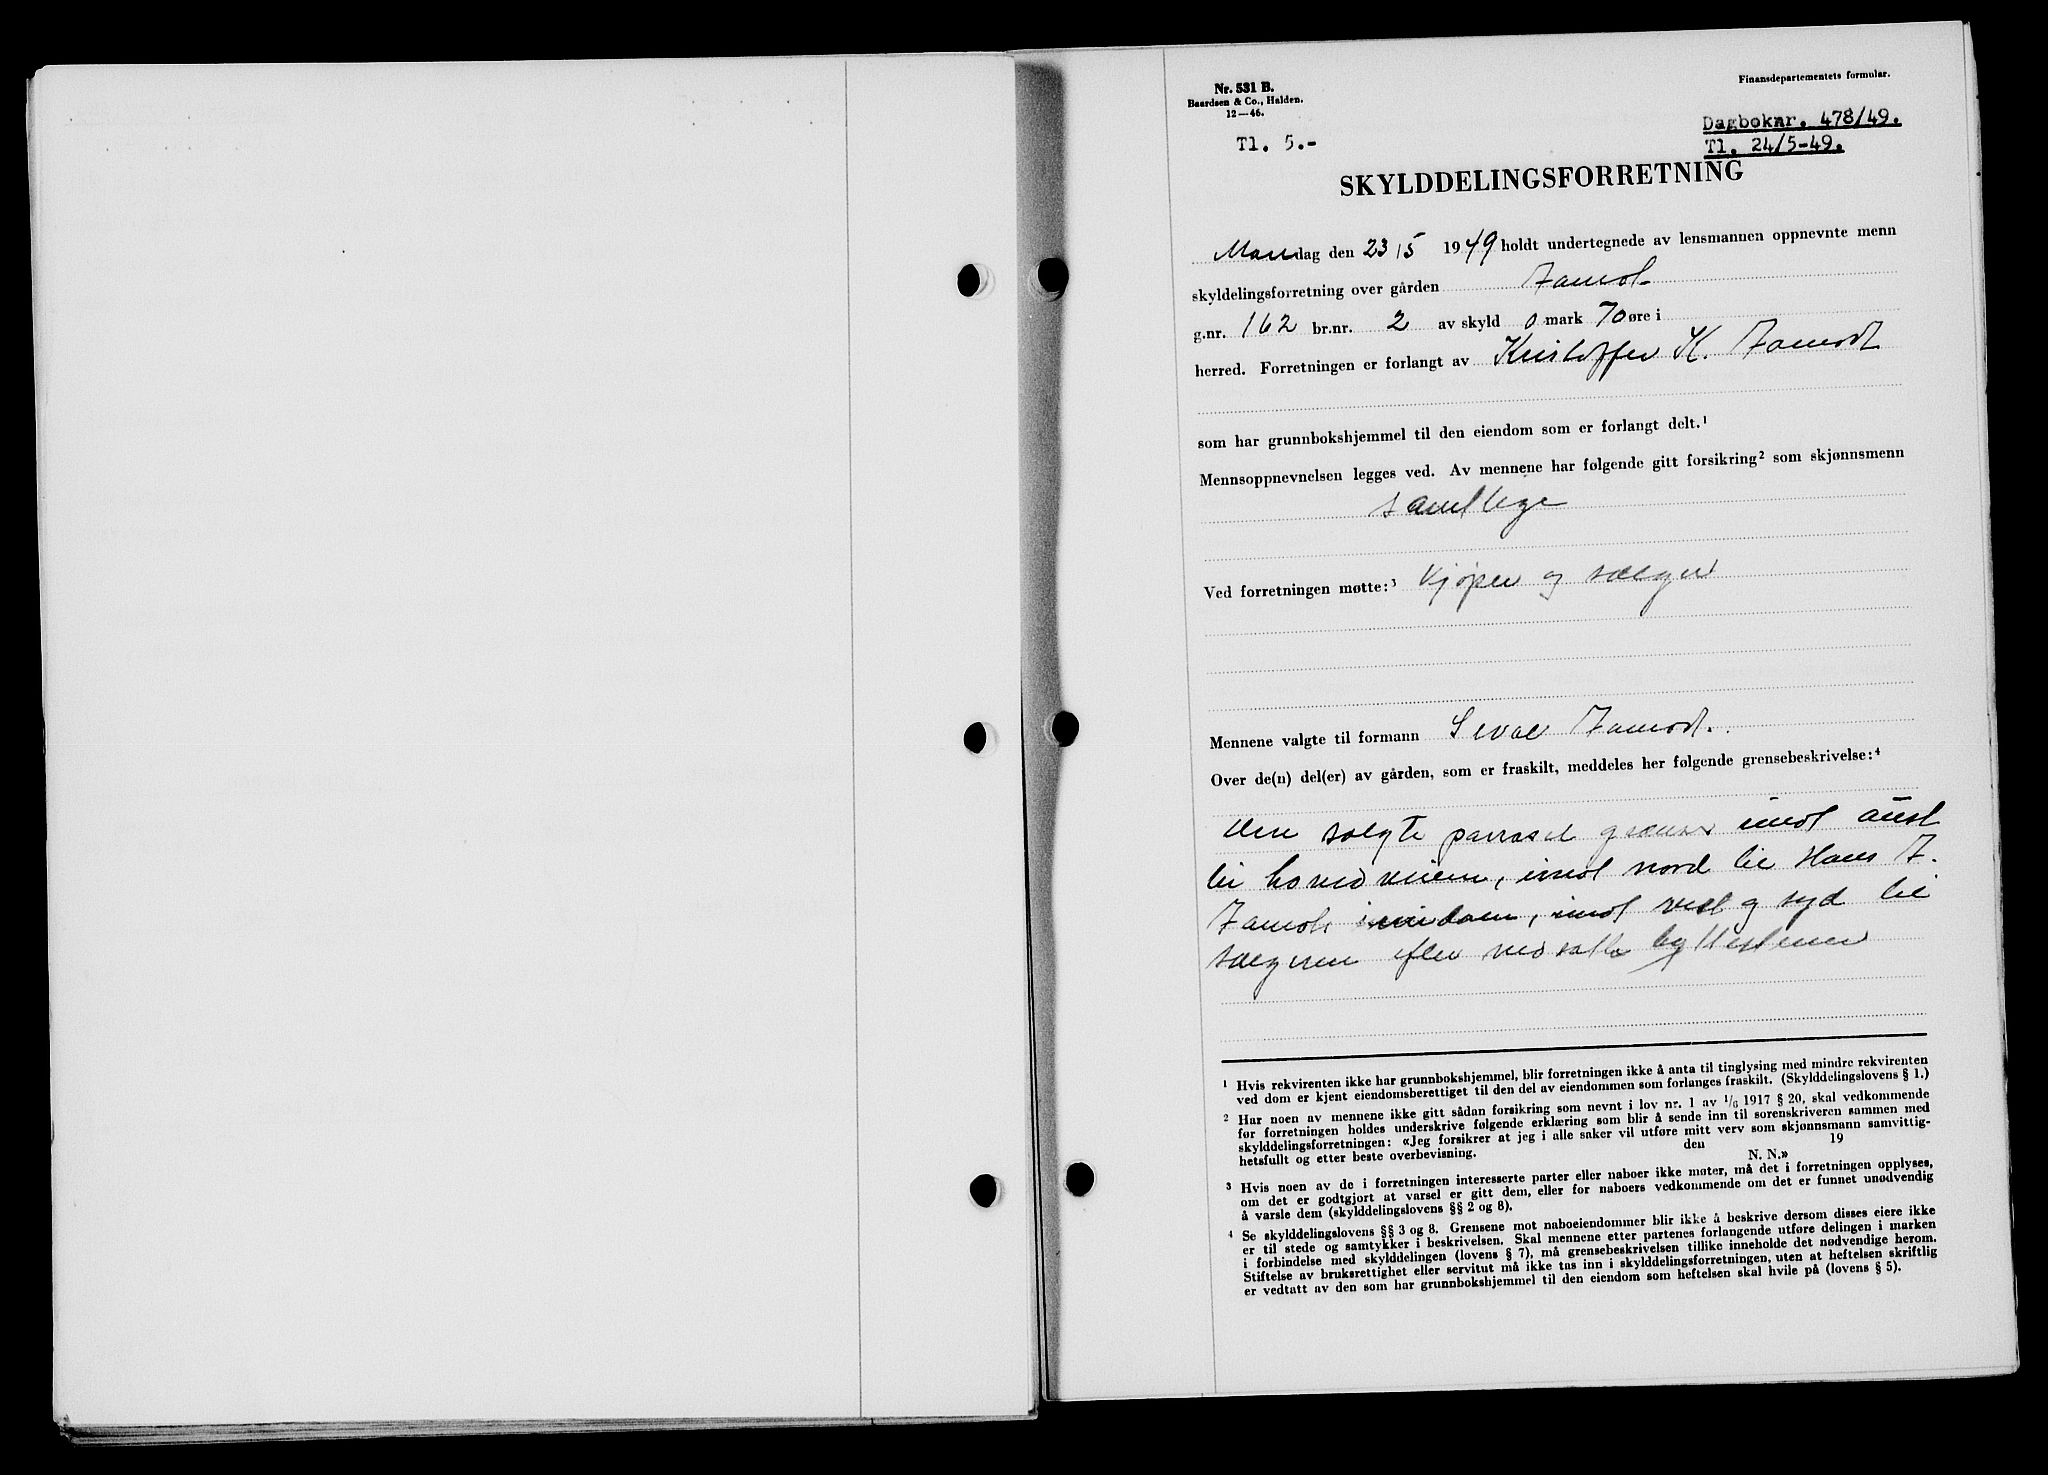 Nr. 531 B.
Baardsen & Co., Halden.
12—46.
Finansdepartementets formular.
Tl. 5.-
Dagboknr. 478/49.
Tl. 24/5-49.
SKYLDDELINGSFORRETNING
Mandag den 23/5 1949 holdt undertegnede av lensmannen oppnevnte menn
skyldelingsforretning over gården
g.nr. 162 br.nr. 2 av skyld 0 mark 70 øre i
herred. Forretningen er forlangt av Kristoffer K.
som har grunnbokshjemmel til den eiendom som er forlangt delt.¹
Mennsoppnevnelsen legges ved. Av mennene har følgende gitt forsikring² som skjønnsmenn
samtlige
Ved forretningen møtte:³ Kjøper og sælger
Mennene valgte til formann
Over de(n) del(er) av gården, som er fraskilt, meddeles her følgende grensebeskrivelse:⁴
den solgte parsel grenser imot aust
til hovedveien, imot nord til Hans
eiendom, imot vest og syd til
sælgeren efter nedsatte byttestener
¹ Hvis rekvirenten ikke har grunnbokshjemmel, blir forretningen ikke å anta til tinglysing med mindre rekvirenten
ved dom er kjent eiendomsberettiget til den del av eiendommen som forlanges fraskilt. (Skylddelingslovens § 1.)
² Har noen av mennene ikke gitt sådan forsikring som nevnt i lov nr. 1 av 1/6 1917 § 20, skal vedkommende
før forretningen holdes underskrive følgende erklæring som blir å sende inn til sorenskriveren sammen med
skylddelingsforretningen: «Jeg forsikrer at jeg i alle saker vil utføre mitt verv som skjønnsmann samvittig-
hetsfullt og etter beste overbevisning. den 19
N. N.»
³ Hvis noen av de i forretningen interesserte parter eller naboer ikke møter, må det i forretningen opplyses,
om det er godtgjort at varsel er gitt dem, eller for naboers vedkommende om det er funnet unødvendig
å varsle dem (skylddelingslovens §§ 2 og 8).
⁴ Se skylddelingslovens §§ 3 og 8. Grensene mot naboeiendommer blir ikke å beskrive dersom disses eiere ikke
er til stede og samtykker i beskrivelsen. Skal mennene etter partenes forlangende utføre delingen i marken
i forbindelse med skylddelingen (lovens § 7), må grensebeskrivelsen tillike inneholde det nødvendige herom.
Stiftelse av bruksrettighet eller servitut må ikke tas inn i skylddelingsforretningen, uten at heftelsen skriftlig
er vedtatt av den som har grunnbokshjemmel til den eiendom som heftelsen skal hvile på (lovens § 5).